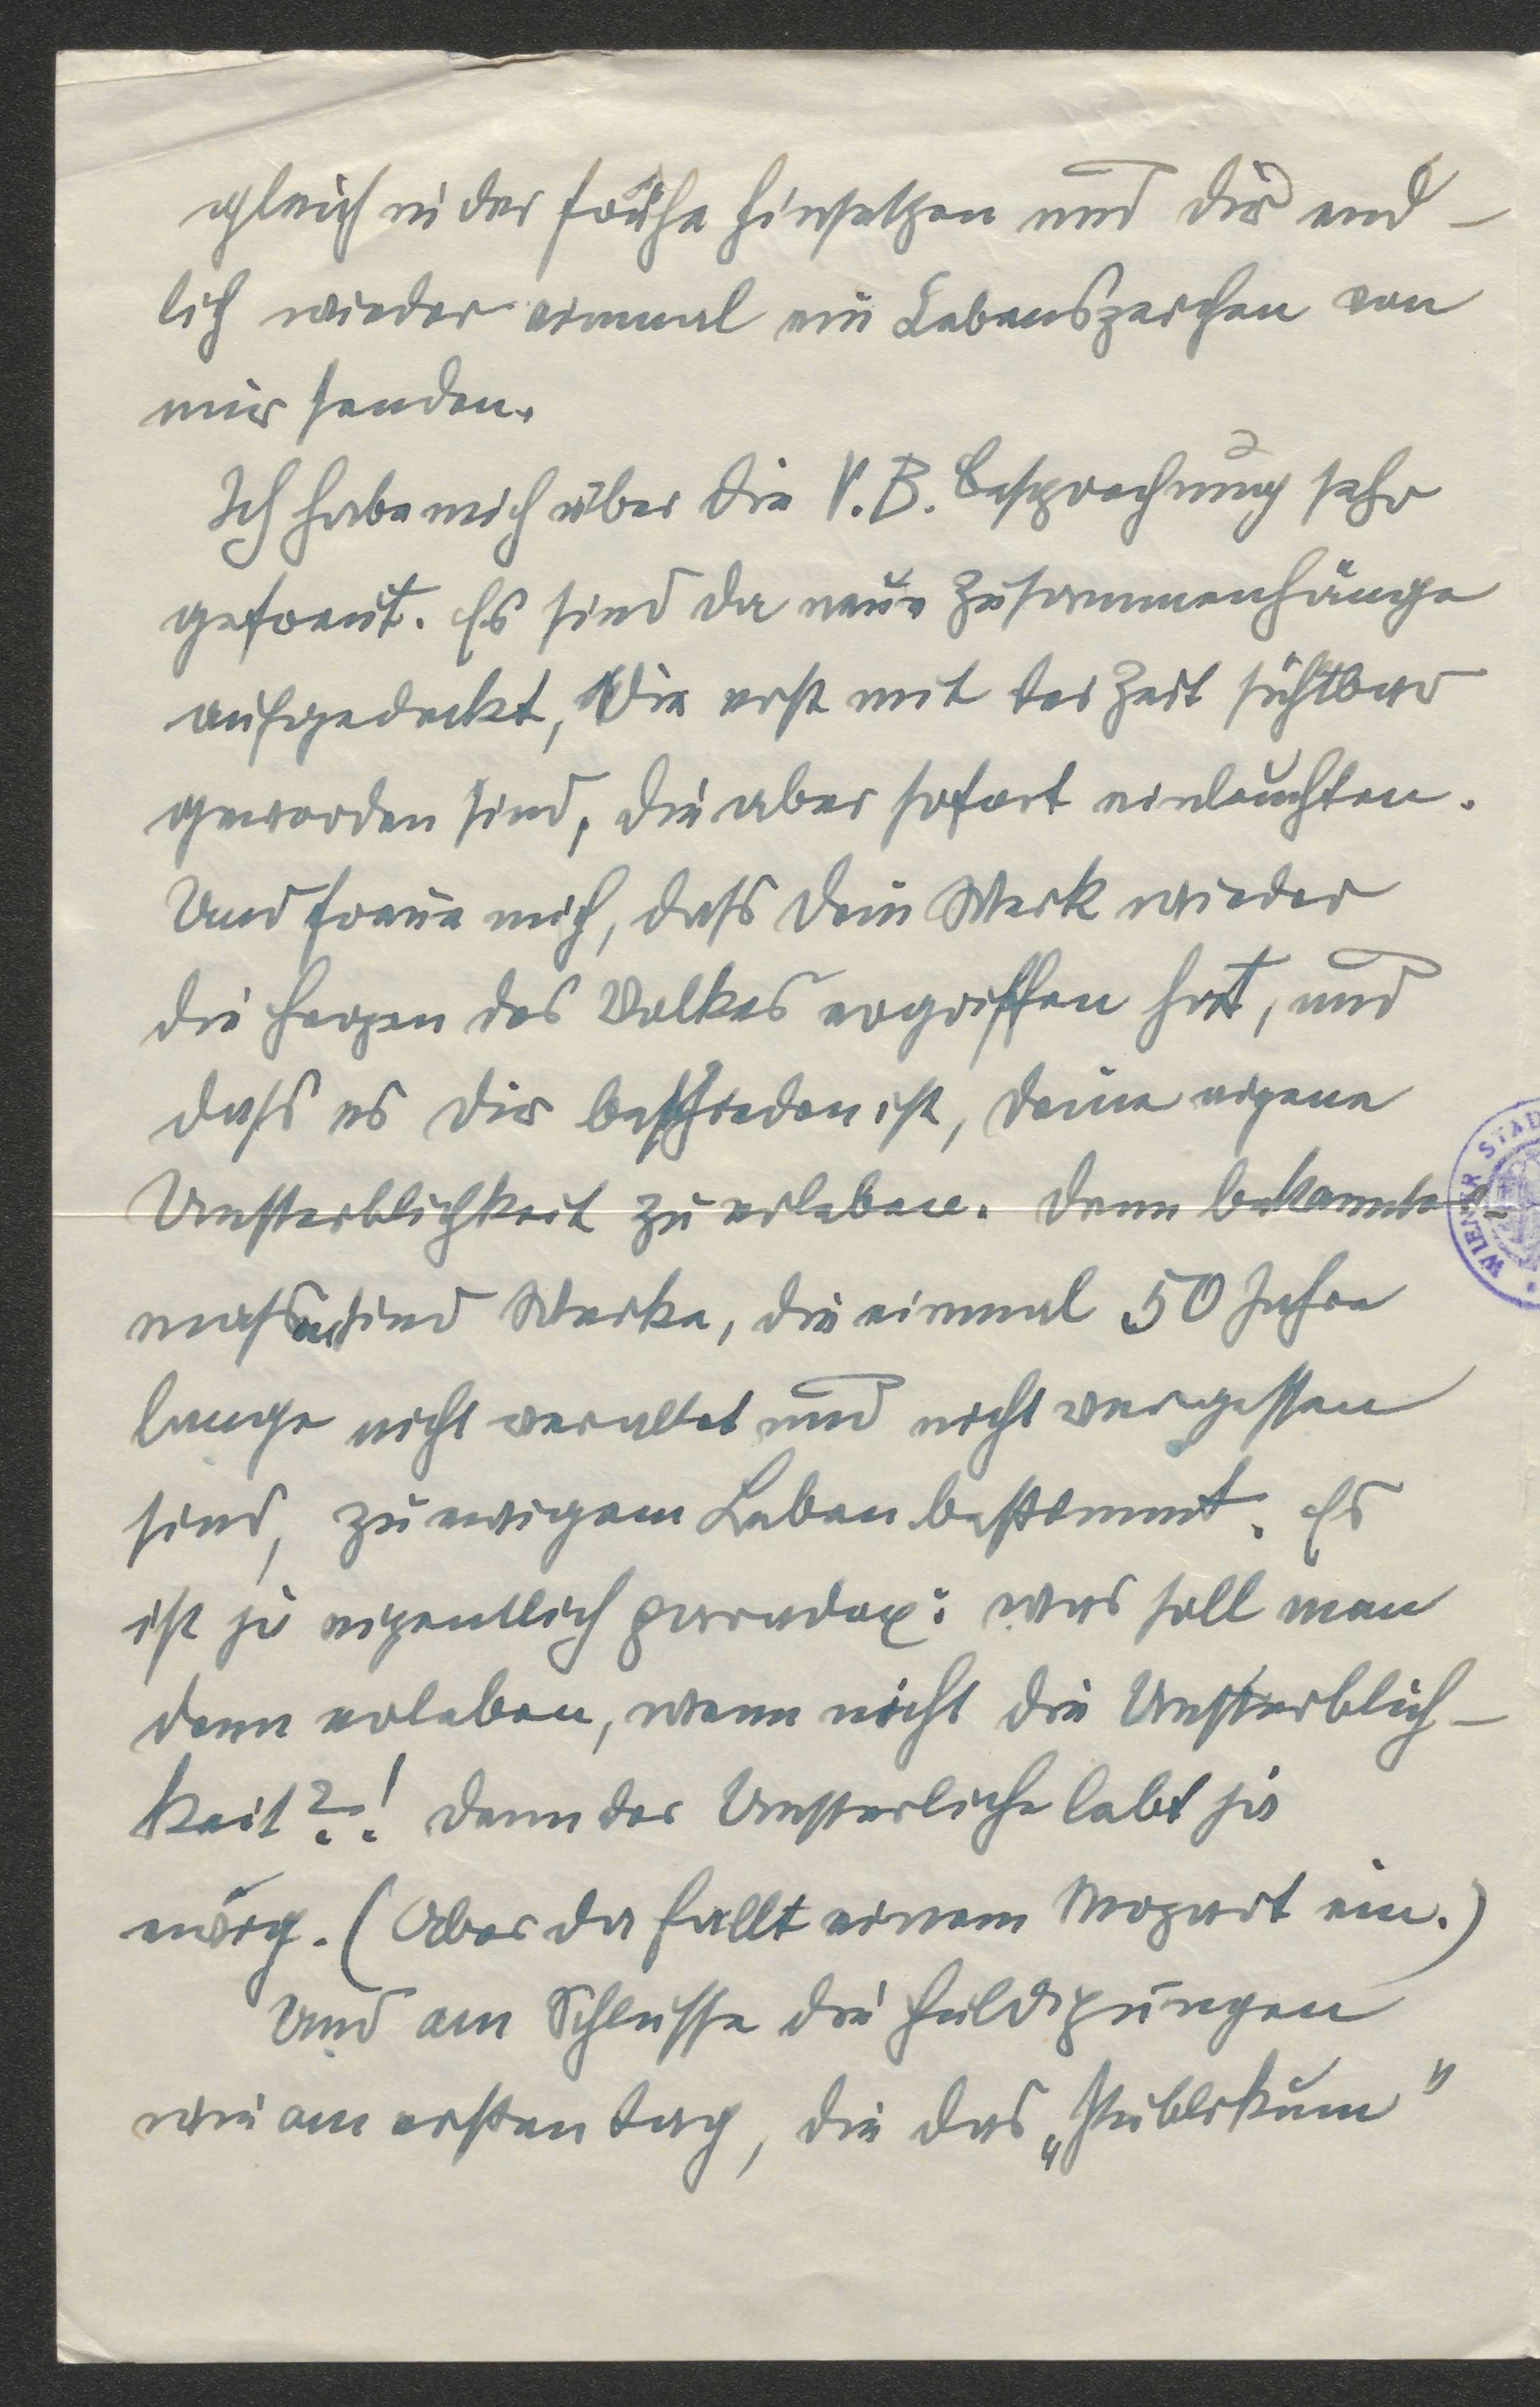 gleich in der Frühe hinsetzen und Dir end-
lich wieder einmal ein Lebenszeichen von
mir senden.
Ich habe mich über die V.B. Besprechung sehr
gefreut. Es sind da neue Zusammenhänge
aufgedeckt, die erst mit der Zeit sichtbar
geworden sind, die aber sofort einleuchten.
Und freue mich, dass Dein Werk wieder
die Herzen des Volkes ergriffen hat, und
dass es Dir beschieden ist, Deine eigene
Unsterblichkeit zu erleben. Denn bekannter-
massen sind Werke, die einmal 50 Jahre
lange nicht veraltet und nicht vergessen
sind, zu ewigem Leben bestimmt. Es
ist ja eigentlich paradox: was soll man
denn erleben, wenn nicht die Unsterblich-
keit?! Denn der Unsterliche lebt ja
ewig. (Aber da fallt einem Mozart ein.)
Und am Schlusse die Huldigungen
wie am ersten Tag, die das „Publikum"
WIENER STAD